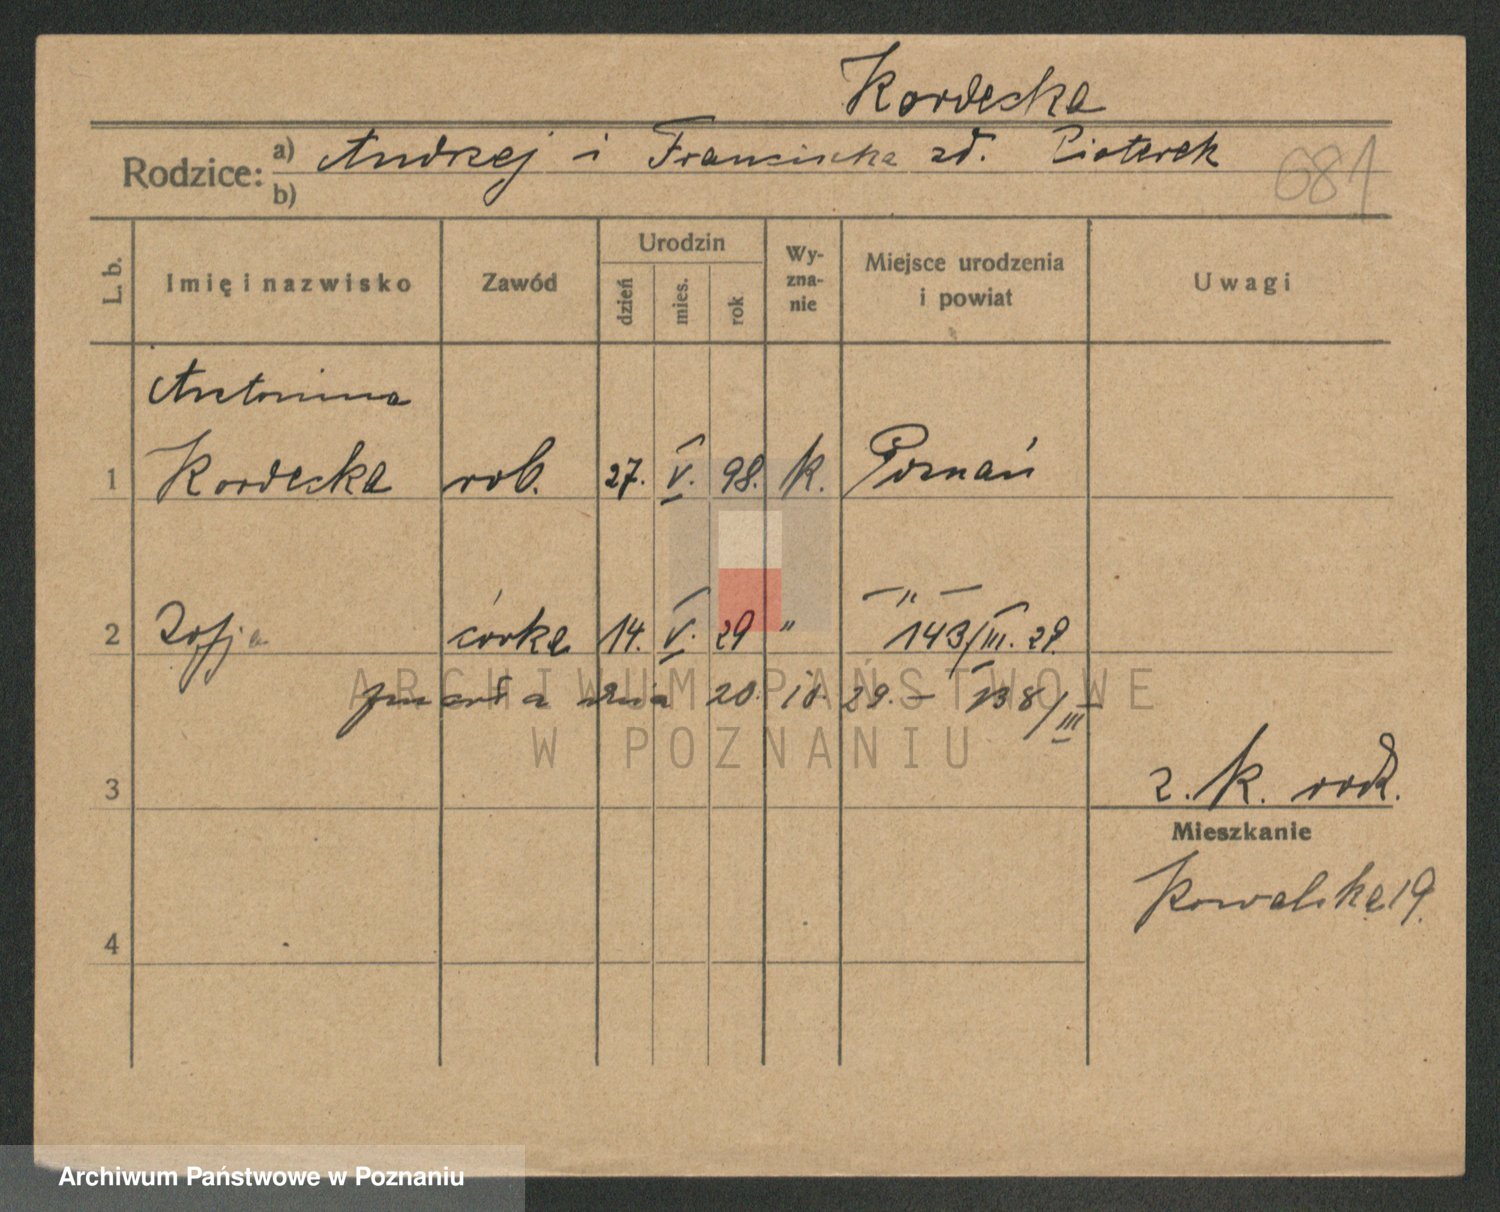 Kordecka
Rodzice: a) Andrzej i Franciszka zd. Pioterek
b)
681
L. b. Imię i nazwisko Zawód Urodzin dzień mies. rok Wy-zna-nie Miejsce urodzenia i powiat Uwagi
Antonina
1 Kordecka rob. 27. V. 98. k. Poznań
— " —
2 Zofja córka 14. V. 29 " 143/III. 29.
zmarła dnia 20. 10. 29. – 138/III
3 z. k. rodz.
Mieszkanie
Kowalska 19.
4
ARCHIWUM PAŃSTWOWE
W POZNANIU
Archiwum Państwowe w Poznaniu